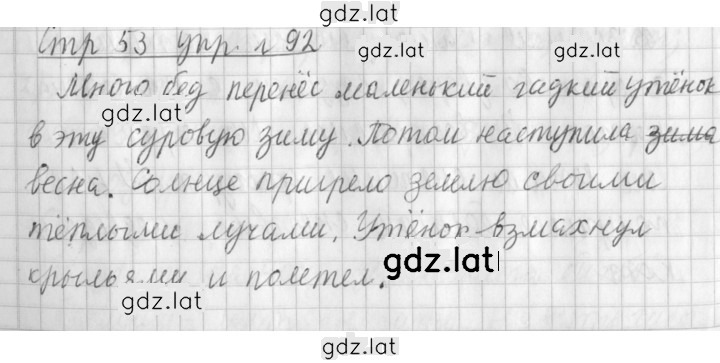 gdz.lat
Стр 53 упр. г 92
gdz.lat
Много бед перенёс маленький гадкий утёнок
gdz.lat
в эту суровую зиму. Потом наступила зима
весна. Солнце пригрело землю своими
тёплыми лучами. Утёнок взмахнул
gdz.lat
крыльями и полетел.
gdz.lat
gdz.lat